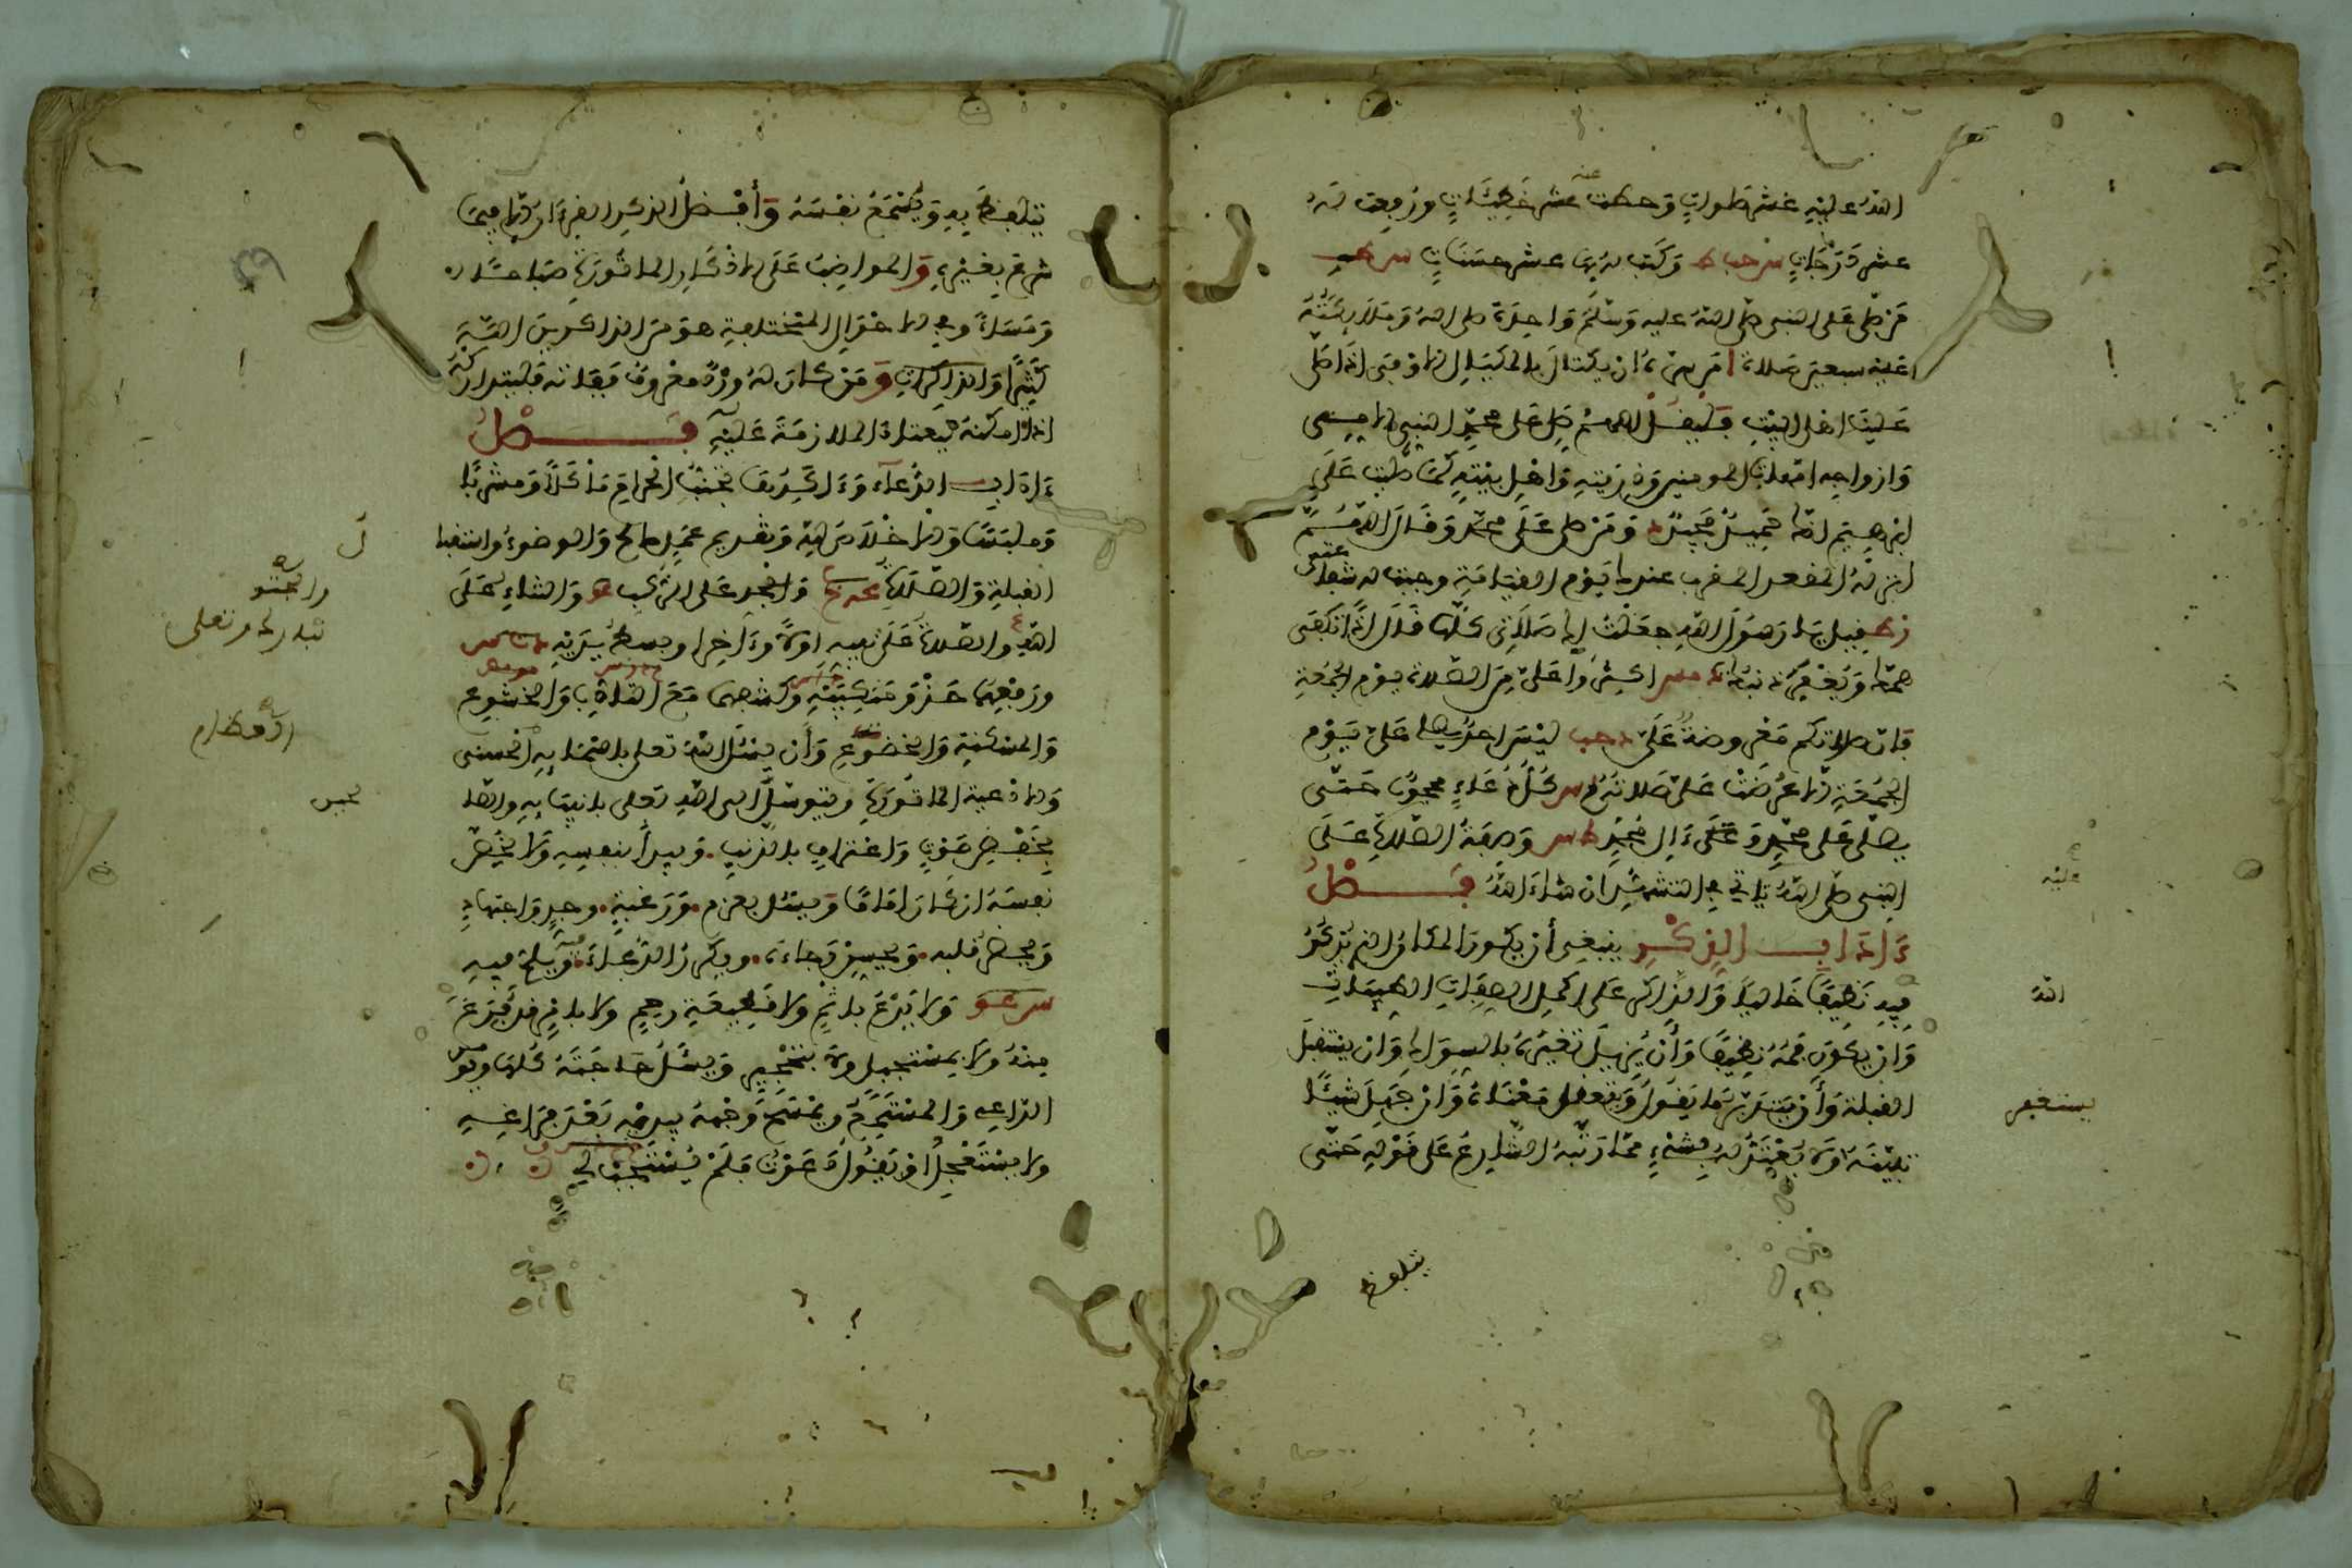 الله عليه عشر صلوات وحطت عنه عشر خطيئات ورفعت له
عشر درجات س حب ط وكتب له بها عشر حسنات س ط
من صلى على النبي صلى الله عليه وسلم واحدة صلى الله وملائكته
عليه سبعين صلاة ا من سره ان يكتال بالمكيال الاوفى اذا صلى
علينا اهل البيت فليقل اللهم صل على محمد النبي الامي
وازواجه امهات المومنين وذريته واهل بيته كما صليت على
ابرهيم انك حميد مجيد د ومن صلى على محمد وقال اللهم
انزله المقعد المقرب عندك يوم القيامة وجبت له شفاعتي
ر ط قيل يا رسول الله جعلت لك صلاتي كلها قال اذا تكفى
همك ويغفر ذنبك ت مس اكثروا علي من الصلاة يوم الجمعة
فان صلاتكم معروضة علي د حب ليس احد يصلي علي يوم
الجمعة الا عرضت علي صلاته مس كل دعاء محجوب حتى
يصلى على محمد وعلى ءال محمد طس وصفة الصلاة على
النبي صلى الله ياتي في التشهد ان شاء الله فصل
ءاداب الذكر ينبغي أن يكون المكان الذي يذكر
فيه نظيفا خاليا والذاكر على اكمل الصفات الاتيات
وان يكون فمه نظيفا وأن يزيل تغيره بالسواك وان يستقبل
القبلة وأن يتدبر ما يقول ويتعقل معناه وان جهل شيئا
تبينه ولا يعتد له بشيء مما رتبه الشارع على قوله حتى
يتلفظ
عليه
الله
يستقبل
يتلفظ به ويسمع نفسه وأفضل الذكر القرءان الا فيما
شرع بغيره والمواظب على الاذكار الماثورة صباحا
ومساء وفي الاحوال المختلفة هو من الذاكرين الله
كثيرا والذاكرات ومن كان له ورد معروف ففاته فليتداركه
اذا امكنه ليعتاد الملازمة عليه فصل
ءاداب الدعاء وءاكدها تجنب الحرام ماكلا ومشربا
وملبسا والاخلاص لله وتقديم عمل صالح والوضوء واستقبال
القبلة والصلاة والجثو على الركب عو والثناء على
الله والصلاة على نبيه اولا وءاخرا وبسط يديه
ورفعهما حذو منكبيه وكشفهما مع التادب والخشوع
والمسكنة والخضوع وأن يسئل الله تعلى باسمائه الحسنى
والادعية الماثورة ويتوسل الى الله تعلى بانبيائه والصالحين
بخفض صوت واعتراف بالذنب ويبدأ بنفسه ولا يخص
نفسه ان كان اماما ويسئل بعزم ورغبة وجد واجتهاد
ويحضر قلبه ويحسن رجاءه ويكرر الدعاء ويلح فيه
ولا يدع باثم ولا قطيعة رحم ولا بامر قد فرغ
منه ولا بمستحيل ولا يتحجر ويسئل حاجته كلها ويؤمن
الداعي والمستمع ويمسح وجهه بيديه بعد فراغه
ولا يستعجل او يقول دعوت فلم يستجب لي
والجثو
تبارك وتعلى